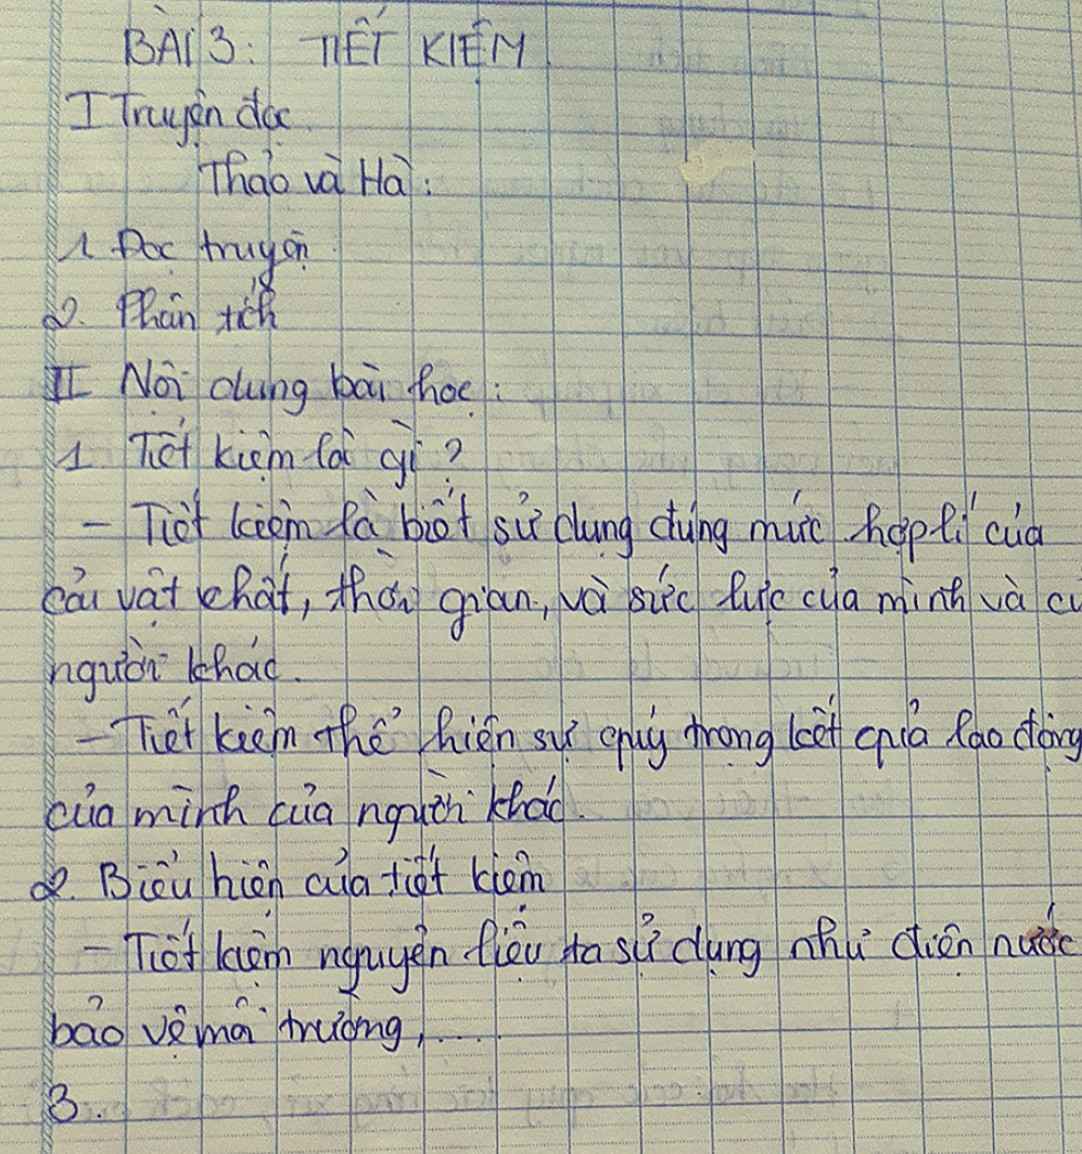 BÀI 3: TIẾT KIỆM
I Truyện đọc
Thảo và Hà:
1 Đọc truyện
2. Phân tích
II Nội dung bài học:
1 Tiết kiệm là gì?
- Tiết kiệm là biết sử dụng đúng mức hợp lí của
cải vật chất, thời gian, và sức lực của mình và củ
người khác.
- Tiết kiệm thể hiện sự quý trọng kết quả lao động
của mình của người khác.
2. Biểu hiện của tiết kiệm
- Tiết kiệm nguyên liệu ta sử dụng như điện nước
bảo vệ môi trường, .....
3.